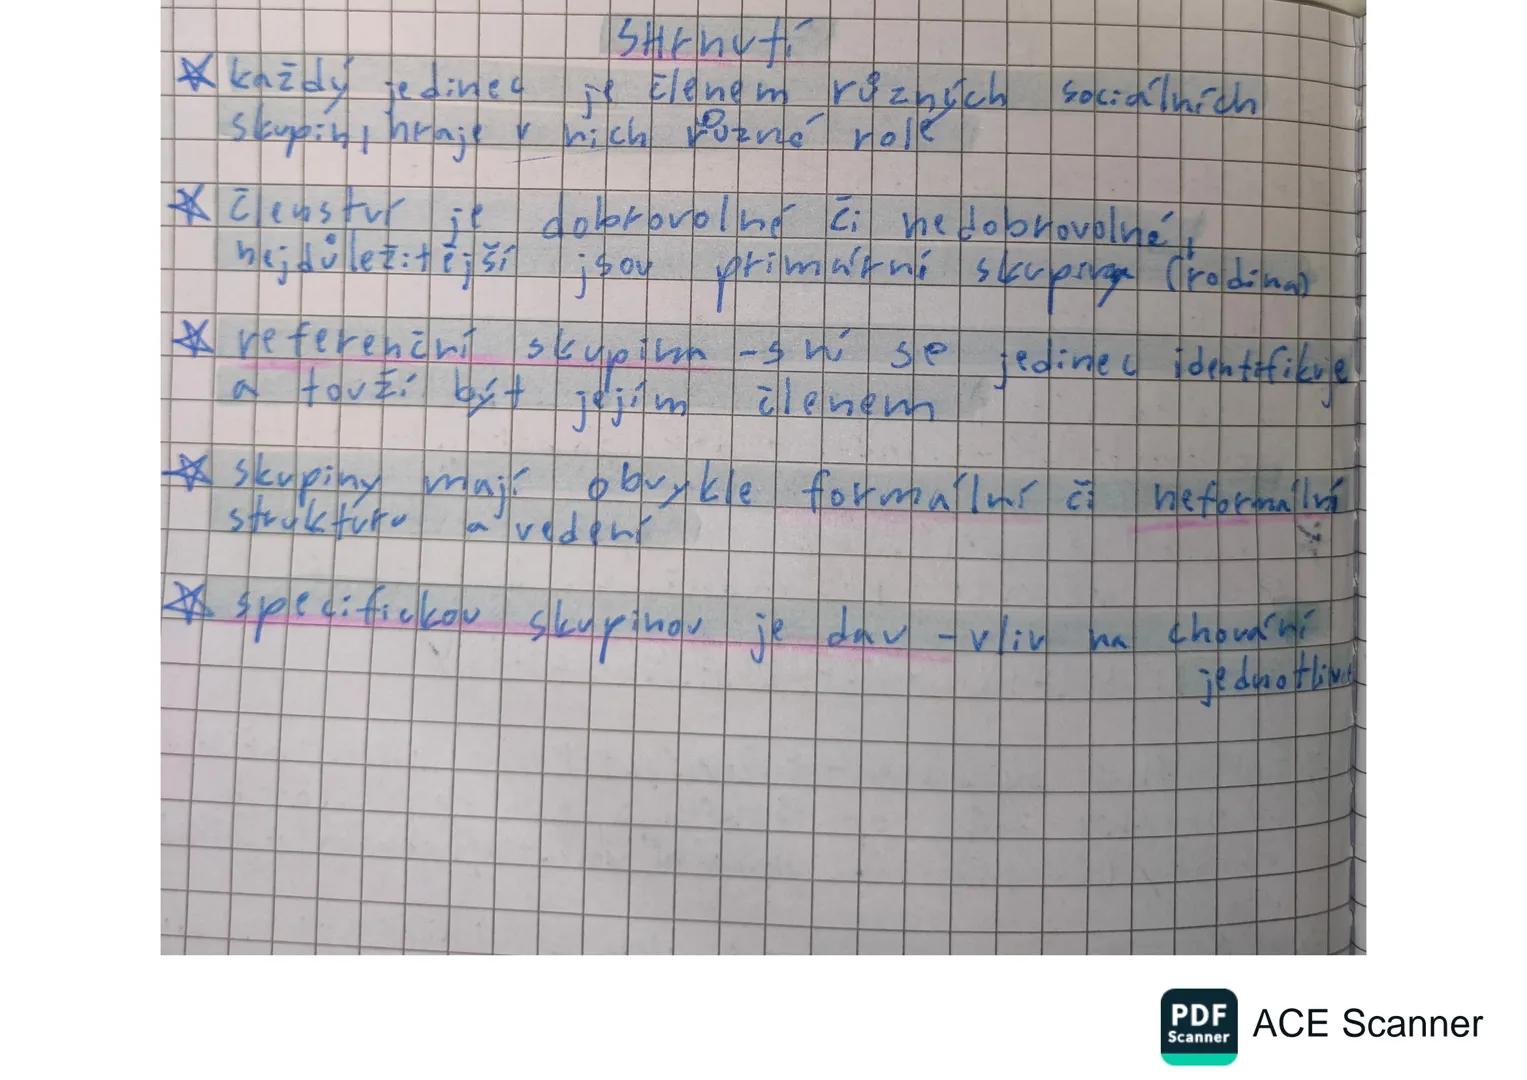 Shrnutí
každý jedinec je členem různých sociálních
skupin, hraje v nich různé role
členství je dobrovolné či nedobrovolné,
nejdůležitější jsou primární skupiny (rodina)
referenční skupina - s ní se jedinec identifikuje
a touží být jejím členem
skupiny mají obvykle formální či neformální
strukturu a vedení
specifickou skupinou je dav - vliv na chování
jednotlivce
PDF
Scanner
ACE Scanner